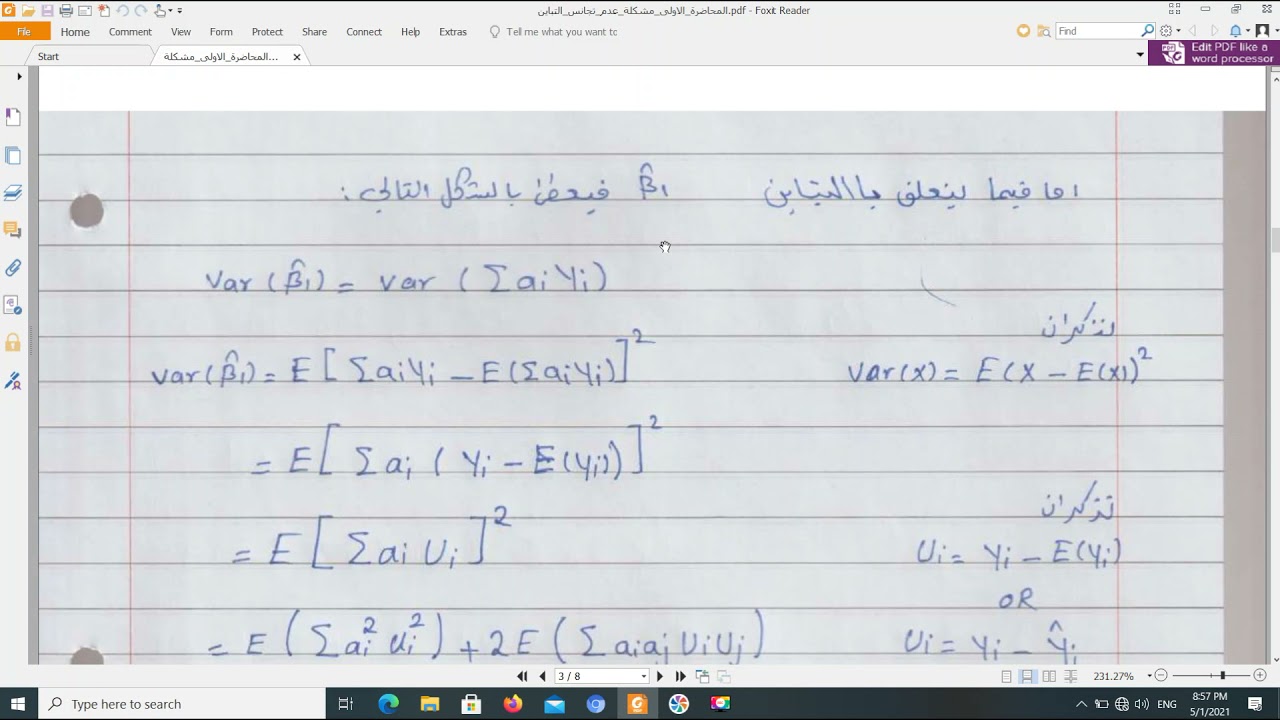 المحاضرة_الاولى_مشكلة_عدم_تجانس_التباين.pdf - Foxit Reader
File Home Comment View Form Protect Share Connect Help Extras Tell me what you want to Find
Edit PDF like a
word processor
Start المحاضرة_الاولى_مشكلة...
اما فيما يتعلق باالتباين β̂1 فيعطى بالشكل التالي :
Var (β̂1) = Var (Σ ai Yi)
تذكر ان
Var(β̂1) = E [ Σ ai Yi – E(Σ ai Yi) ]²
Var(X) = E(X – E(X))²
= E [ Σ ai ( Yi – E(Yi)) ]²
تذكر ان
= E [ Σ ai Ui ]²
Ui = Yi – E(Yi)
OR
= E ( Σ ai² Ui² ) + 2 E ( Σ ai aj Ui Uj )
Ui = Yi – Ŷi
3 / 8
231.27%
Type here to search
ENG
8:57 PM
5/1/2021